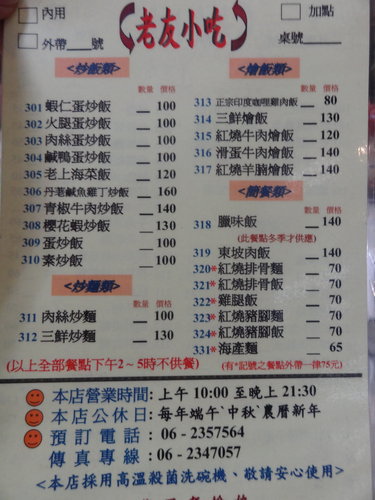 內用
外帶___號
老友小吃
加點
桌號___
<炒飯類>
數量 價格
301 蝦仁蛋炒飯 __ 100
302 火腿蛋炒飯 __ 100
303 肉絲蛋炒飯 __ 100
304 鹹鴨蛋炒飯 __ 100
305 老上海菜飯 __ 120
306 丹荖鹹魚雞丁炒飯 __ 160
307 青椒牛肉炒飯 __ 140
308 櫻花蝦炒飯 __ 130
309 蛋炒飯 __ 100
310 素炒飯 __ 100
<炒麵類>
數量 價格
311 肉絲炒麵 __ 100
312 三鮮炒麵 __ 130
<燴飯類>
數量 價格
313 正宗印度咖哩雞肉飯 __ 80
314 三鮮燴飯 __ 130
315 紅燒牛肉燴飯 __ 120
316 滑蛋牛肉燴飯 __ 140
317 紅燒羊腩燴飯 __ 140
<簡餐類>
數量 價格
318 臘味飯 __ 140
(此餐點冬季才供應)
319 東坡肉飯 __ 140
320*紅燒排骨麵 __ 70
321*紅燒排骨飯 __ 70
322*雞腿飯 __ 70
323*紅燒豬腳麵 __ 70
324*紅燒豬腳飯 __ 70
331*海產麵 __ 65
(以上全部餐點下午2~5時不供餐)
(有*記號之餐點外帶一律75元)
本店營業時間: 上午 10:00 至晚上 21:30
本店公休日: 每年端午`中秋`農曆新年
預訂電話 : 06 - 2357564
傳真專線 : 06 - 2347057
<本店採用高溫殺菌洗碗機、敬請安心使用>